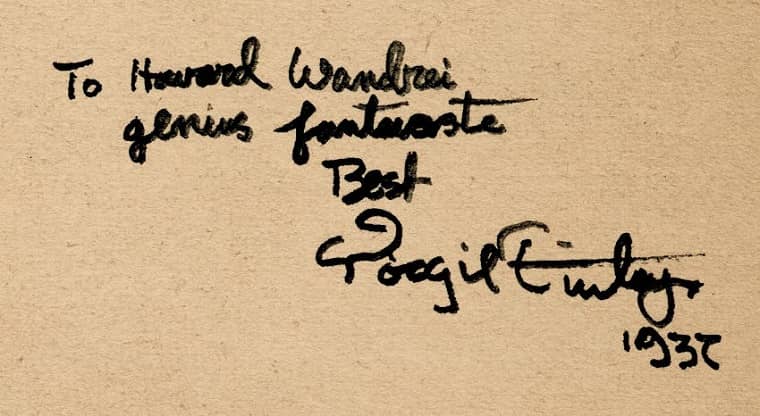 To Howard Wandrei
genius
Best
Virgil Finlay
1937